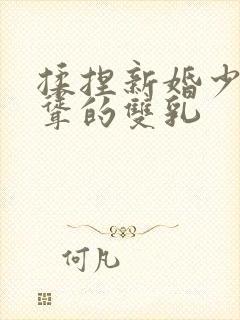 揉捏新婚少
聳的雙乳
何凡